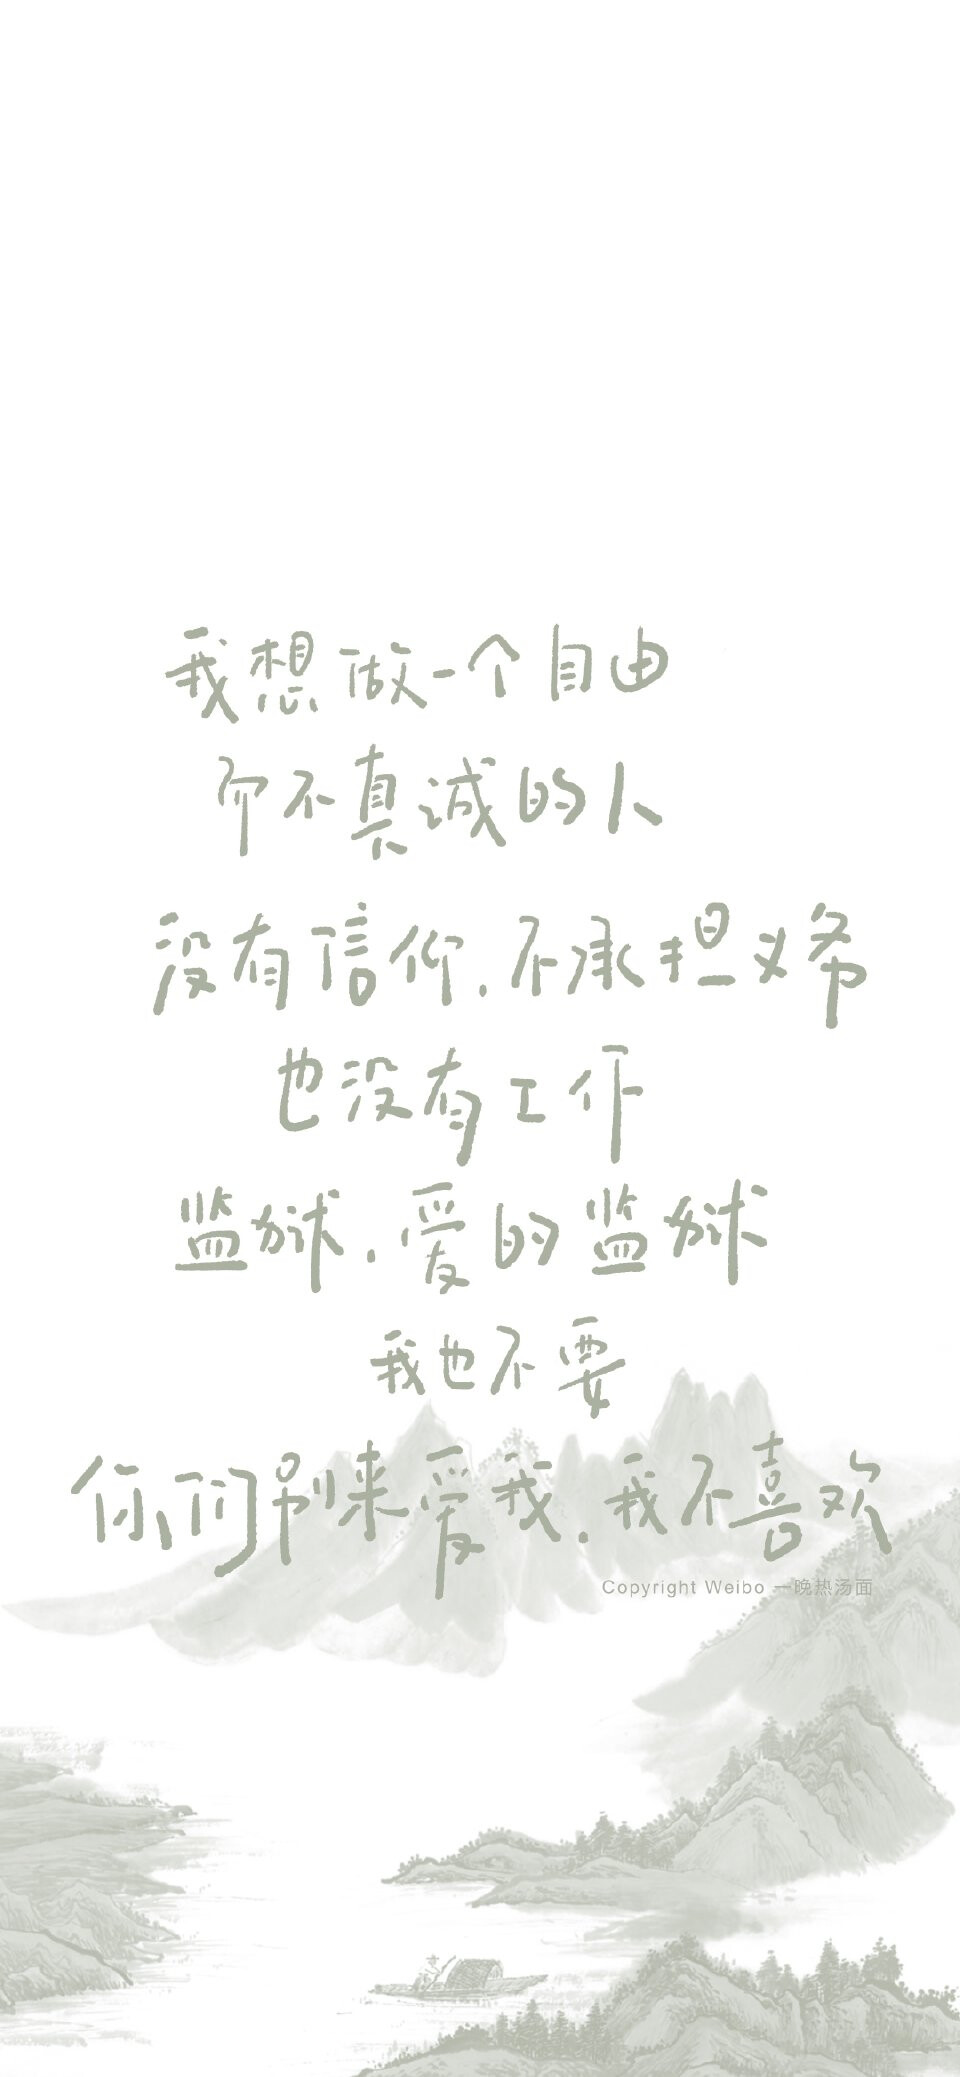 我想做一个自由
而不真诚的人
没有信仰.不承担义务
也没有工作
监狱.爱的监狱
我也不要
你们别来爱我.我不喜欢
Copyright Weibo 一晚热汤面